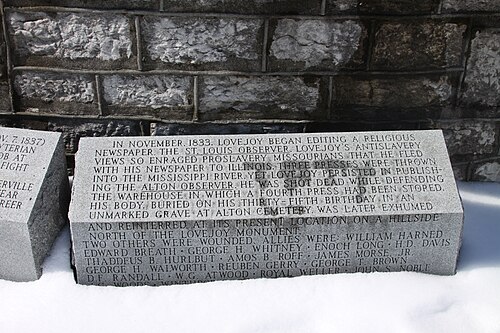 V. 7, 1837)
YTERIAN
OB AT
FIGHT
ERVILLE
EAR
REER
IN NOVEMBER, 1833, LOVEJOY BEGAN EDITING A RELIGIOUS
NEWSPAPER, THE ST. LOUIS OBSERVER. LOVEJOY'S ANTISLAVERY
VIEWS SO ENRAGED PROSLAVERY MISSOURIANS THAT HE FLED
WITH HIS NEWSPAPER TO ILLINOIS. THREE PRESSES WERE THROWN
INTO THE MISSISSIPPI RIVER, YET LOVEJOY PERSISTED IN PUBLISH-
ING THE ALTON OBSERVER. HE WAS SHOT DEAD WHILE DEFENDING
THE WAREHOUSE IN WHICH A FOURTH PRESS HAD BEEN STORED.
HIS BODY, BURIED ON HIS THIRTY-FIFTH BIRTHDAY IN AN
UNMARKED GRAVE AT ALTON CEMETERY, WAS LATER EXHUMED
AND REINTERRED AT ITS PRESENT LOCATION ON A HILLSIDE
NORTH OF THE LOVEJOY MONUMENT.
TWO OTHERS WERE WOUNDED. ALLIES WERE WILLIAM HARNED
EDWARD BREATH · GEORGE H. WHITNEY · ENOCH LONG · H.D. DAVIS
THADDEUS B. HURLBUT · AMOS B. ROFF · JAMES MORSE, JR.
GEORGE H. WALWORTH · REUBEN GERRY · GEORGE T. BROWN
D.F. RANDALL · W.G. ATWOOD · ROYAL WELLER · JOHN NOBLE